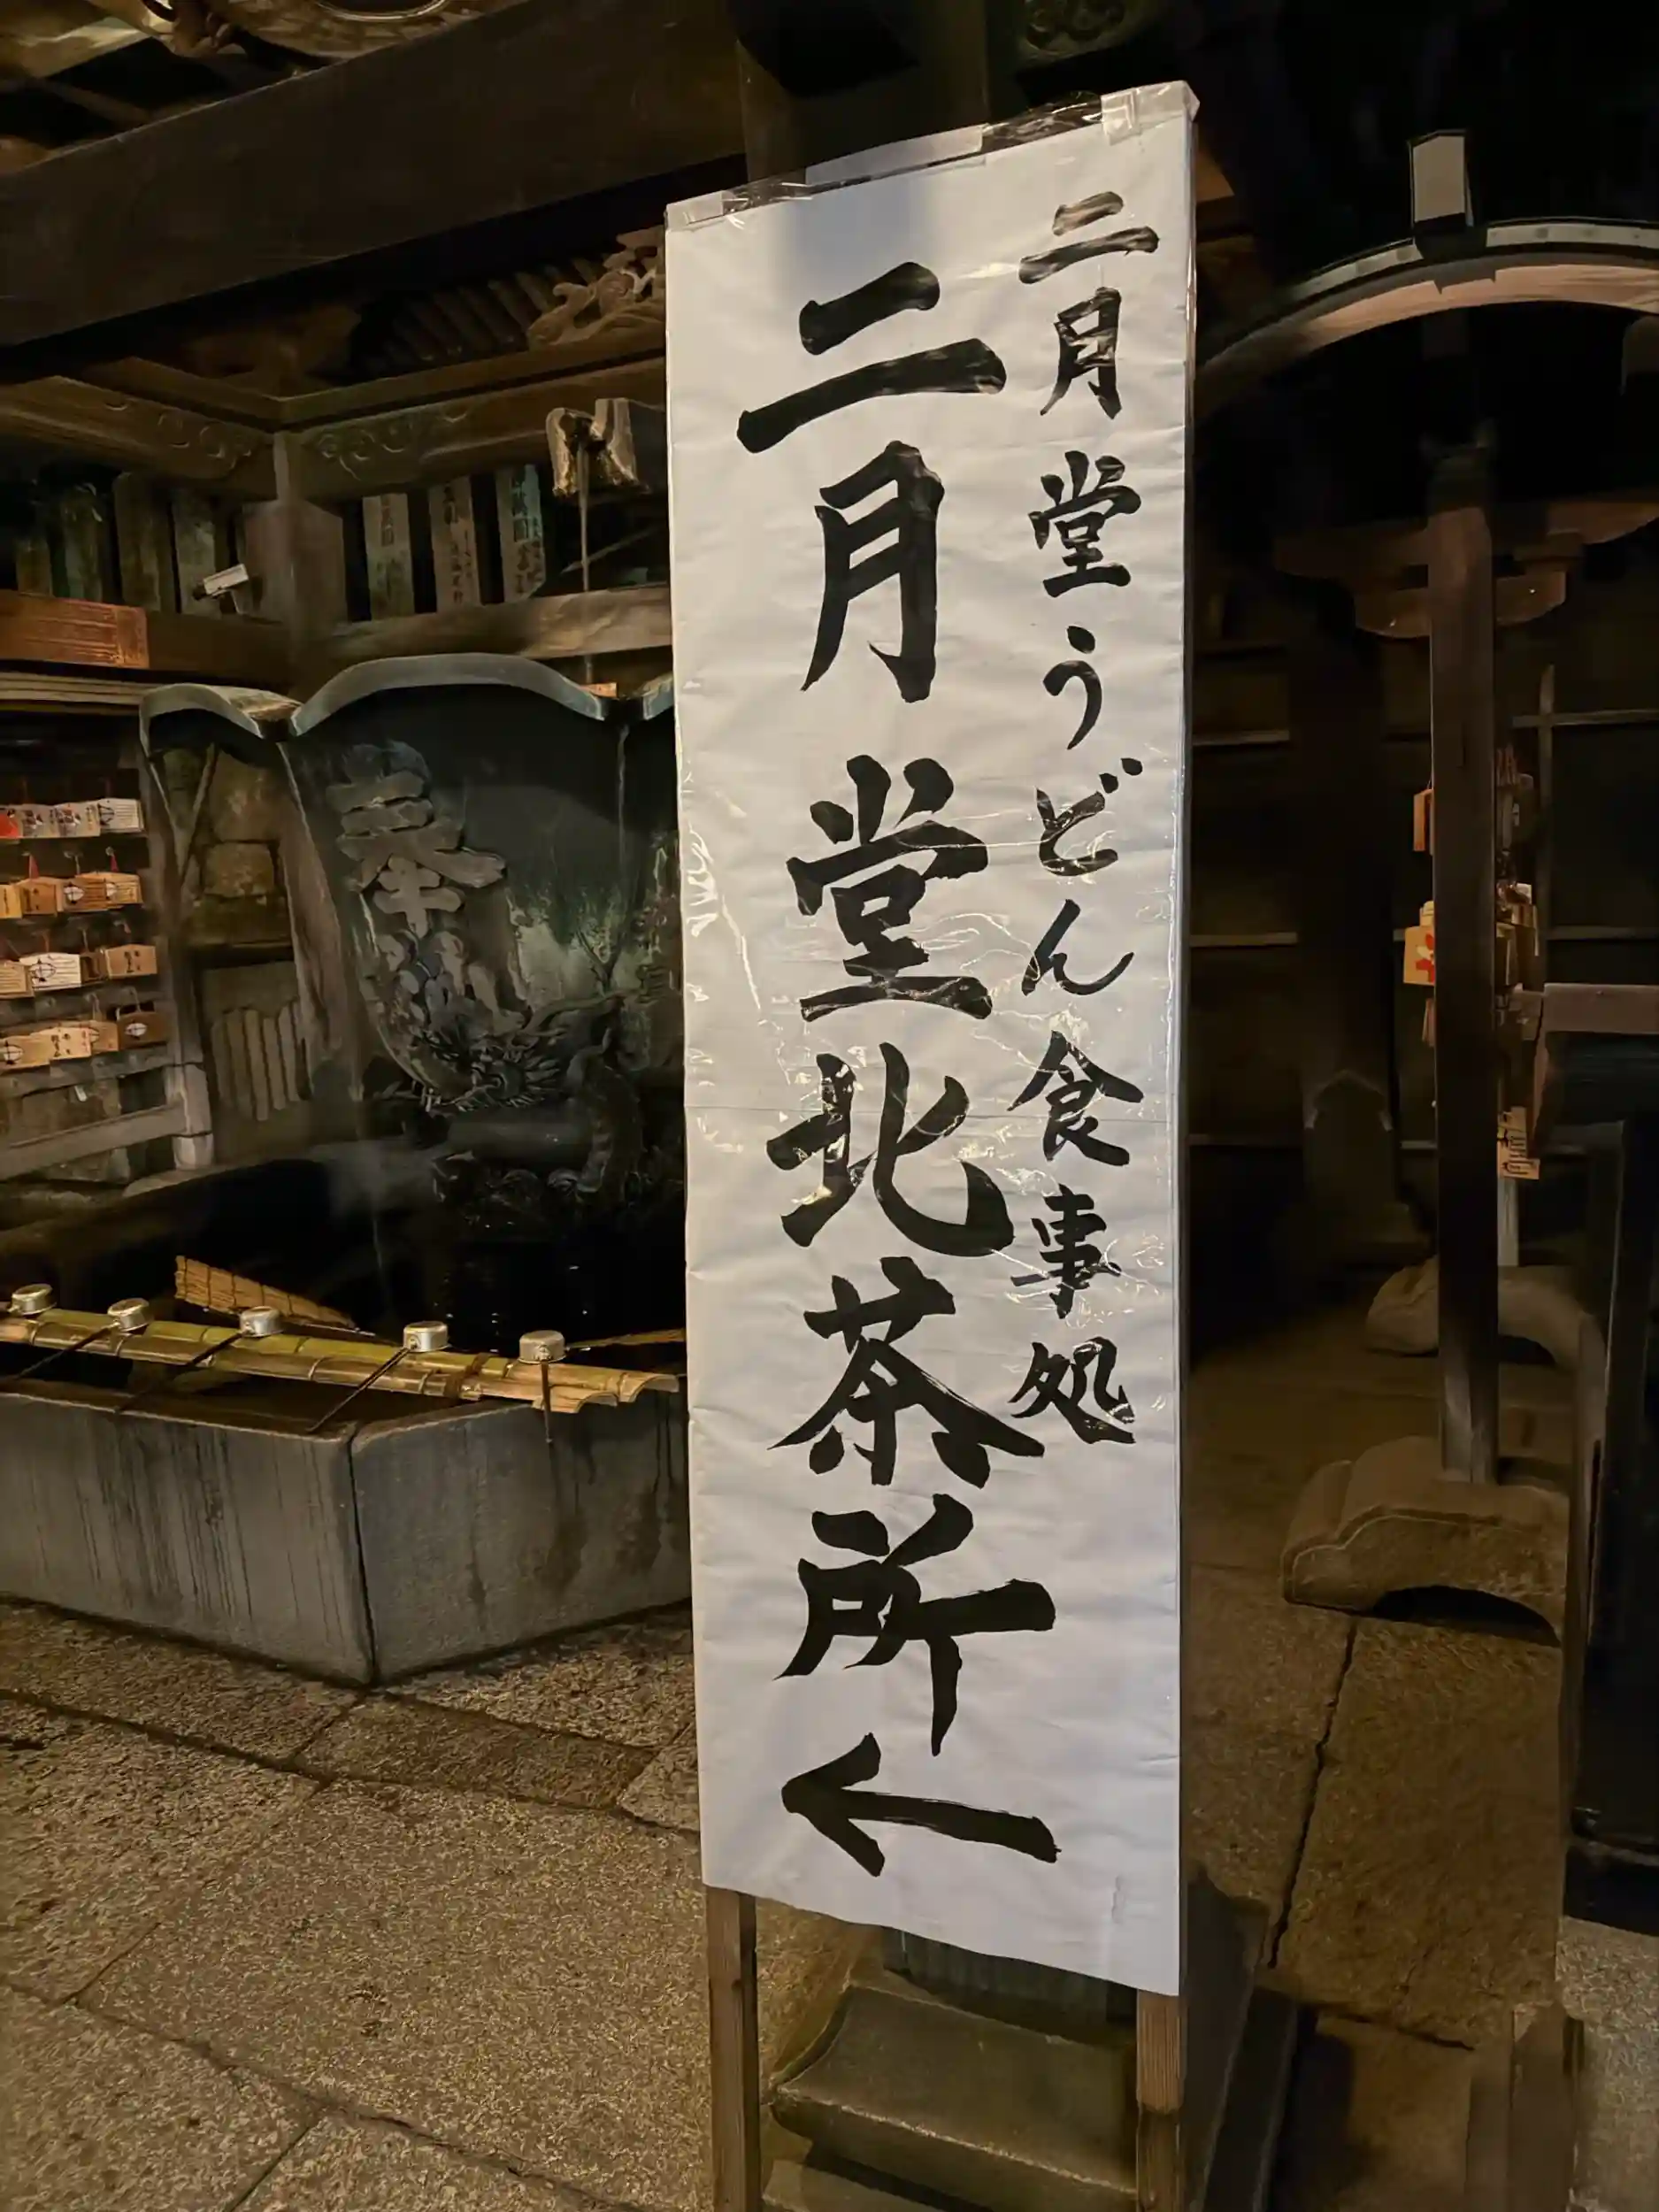 二月堂うどん食事処
二月堂北茶所
←
奉